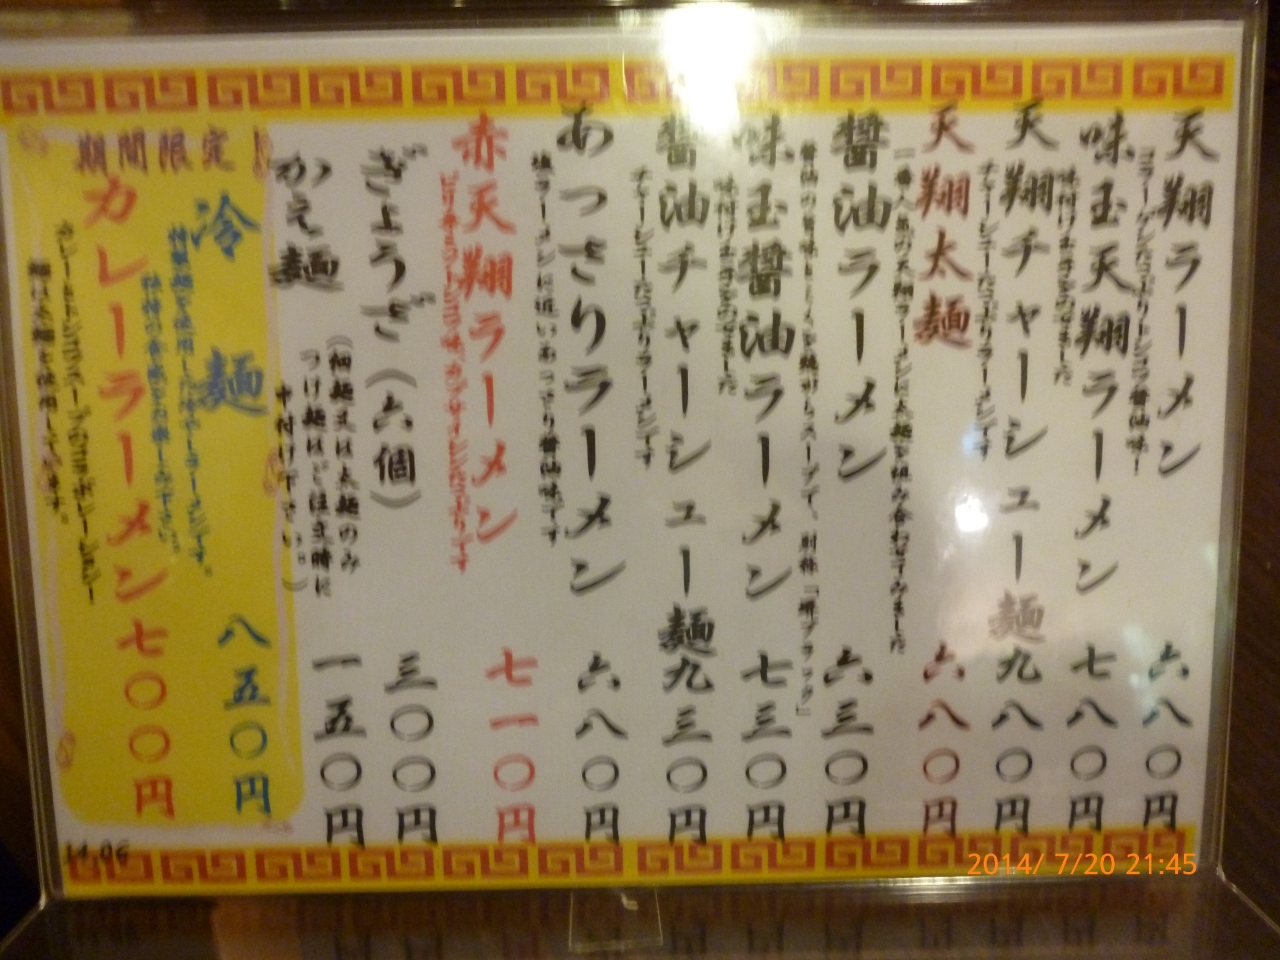 天翔ラーメン 六八〇円
コラーゲンたっぷりトンコツ醤油味!
味玉天翔ラーメン 七八〇円
味付け玉子をのせました
天翔チャーシュー麺 九八〇円
チャーシューたっぷりラーメンです
天翔太麺 六八〇円
一番人気の天翔ラーメンに太麺を組み合わせてみました
醤油ラーメン 六三〇円
醤油の旨味とコクを 스ープで、別称「堺ブラック」
味玉醤油ラーメン 七三〇円
味付け玉子をのせました
醤油チャーシュー麺 九三〇円
チャーシューたっぷりラーメンです
あっさりラーメン 六八〇円
塩ラーメンに近いあっさり醤油味です
赤天翔ラーメン 七一〇円
ピリ辛みそトンコツ味、カプサイシンたっぷりです
ぎょうざ(六個) 三〇〇円
かえ麺 一五〇円
(細麺又は太麺のみ
つけ麺はご注文時に
申付け下さい。)
期間限定!
冷麺 八五〇円
特製麺を使用した冷やしラーメンです。
独特の食感をお楽しみ下さい。
カレーラーメン 七〇〇円
カレーとトンコツスープのコラボレーション!
麺は太麺を使用しています。
14.06
2014/ 7/20 21:45